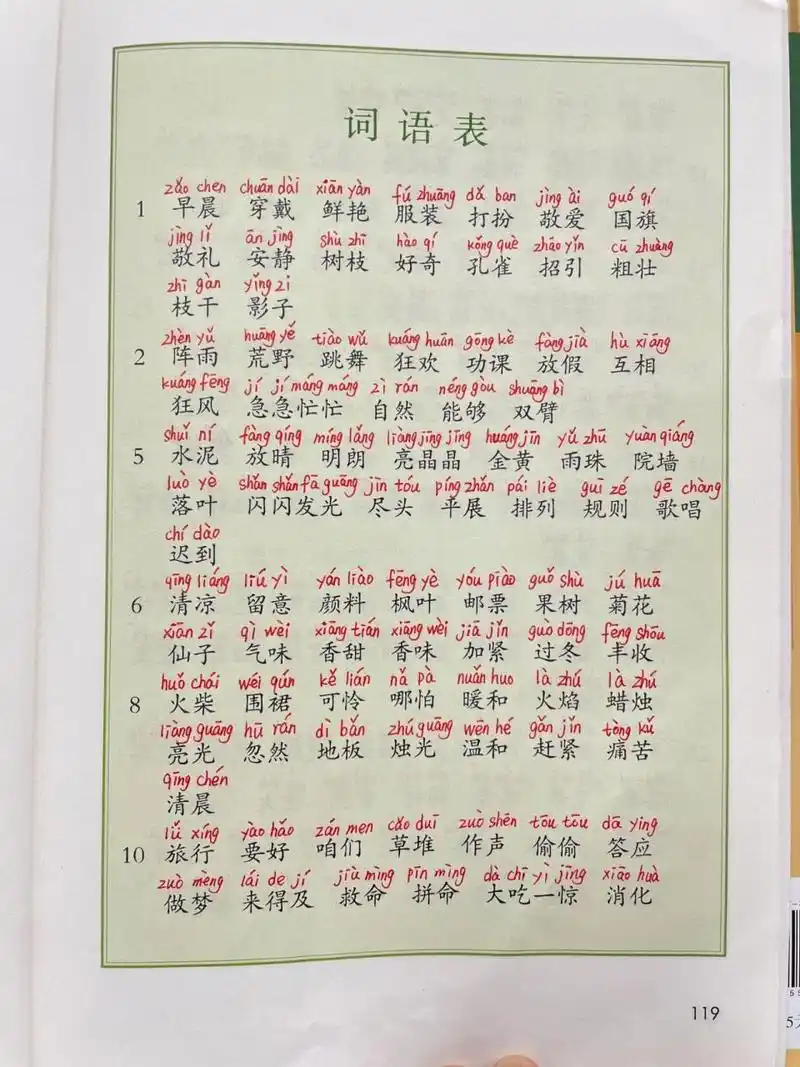 词语表
zǎo chen chuān dài xiān yàn fú zhuāng dǎ ban jìng ài guó qí
1 早晨 穿戴 鲜艳 服装 打扮 敬爱 国旗
jìng lǐ ān jìng shù zhī hào qí kǒng què zhāo yǐn cū zhuàng
敬礼 安静 树枝 好奇 孔雀 招引 粗壮
zhī gàn yǐng zi
枝干 影子
zhèn yǔ huāng yě tiào wǔ kuáng huān gōng kè fàng jià hù xiāng
2 阵雨 荒野 跳舞 狂欢 功课 放假 互相
kuáng fēng jí jí máng máng zì rán néng gòu shuāng bì
狂风 急急忙忙 自然 能够 双臂
shuǐ ní fàng qíng míng lǎng liàng jīng jīng huáng jīn yǔ zhū yuàn qiáng
5 水泥 放晴 明朗 亮晶晶 金黄 雨珠 院墙
luò yè shǎn shǎn fā guāng jìn tóu píng zhǎn pái liè guī zé gē chàng
落叶 闪闪发光 尽头 平展 排列 规则 歌唱
chí dào
迟到
qīng liáng liú yì yán liào fēng yè yóu piào guǒ shù jú huā
6 清凉 留意 颜料 枫叶 邮票 果树 菊花
xiān zǐ qì wèi xiāng tián xiāng wèi jiā jǐn guò dōng fēng shōu
仙子 气味 香甜 香味 加紧 过冬 丰收
huǒ chái wéi qún kě lián nǎ pà nuǎn huo là zhú là zhú
8 火柴 围裙 可怜 哪怕 暖和 火焰 蜡烛
liàng guāng hū rán dì bǎn zhú guāng wēn hé gǎn jǐn tòng kǔ
亮光 忽然 地板 烛光 温和 赶紧 痛苦
qīng chén
清晨
lǚ xíng yào hǎo zán men cǎo duī zuò shēn tōu tōu dā ying
10 旅行 要好 咱们 草堆 作声 偷偷 答应
zuò mèng lái de jí jiù mìng pīn mìng dà chī yì jīng xiāo huà
做梦 来得及 救命 拼命 大吃一惊 消化
119